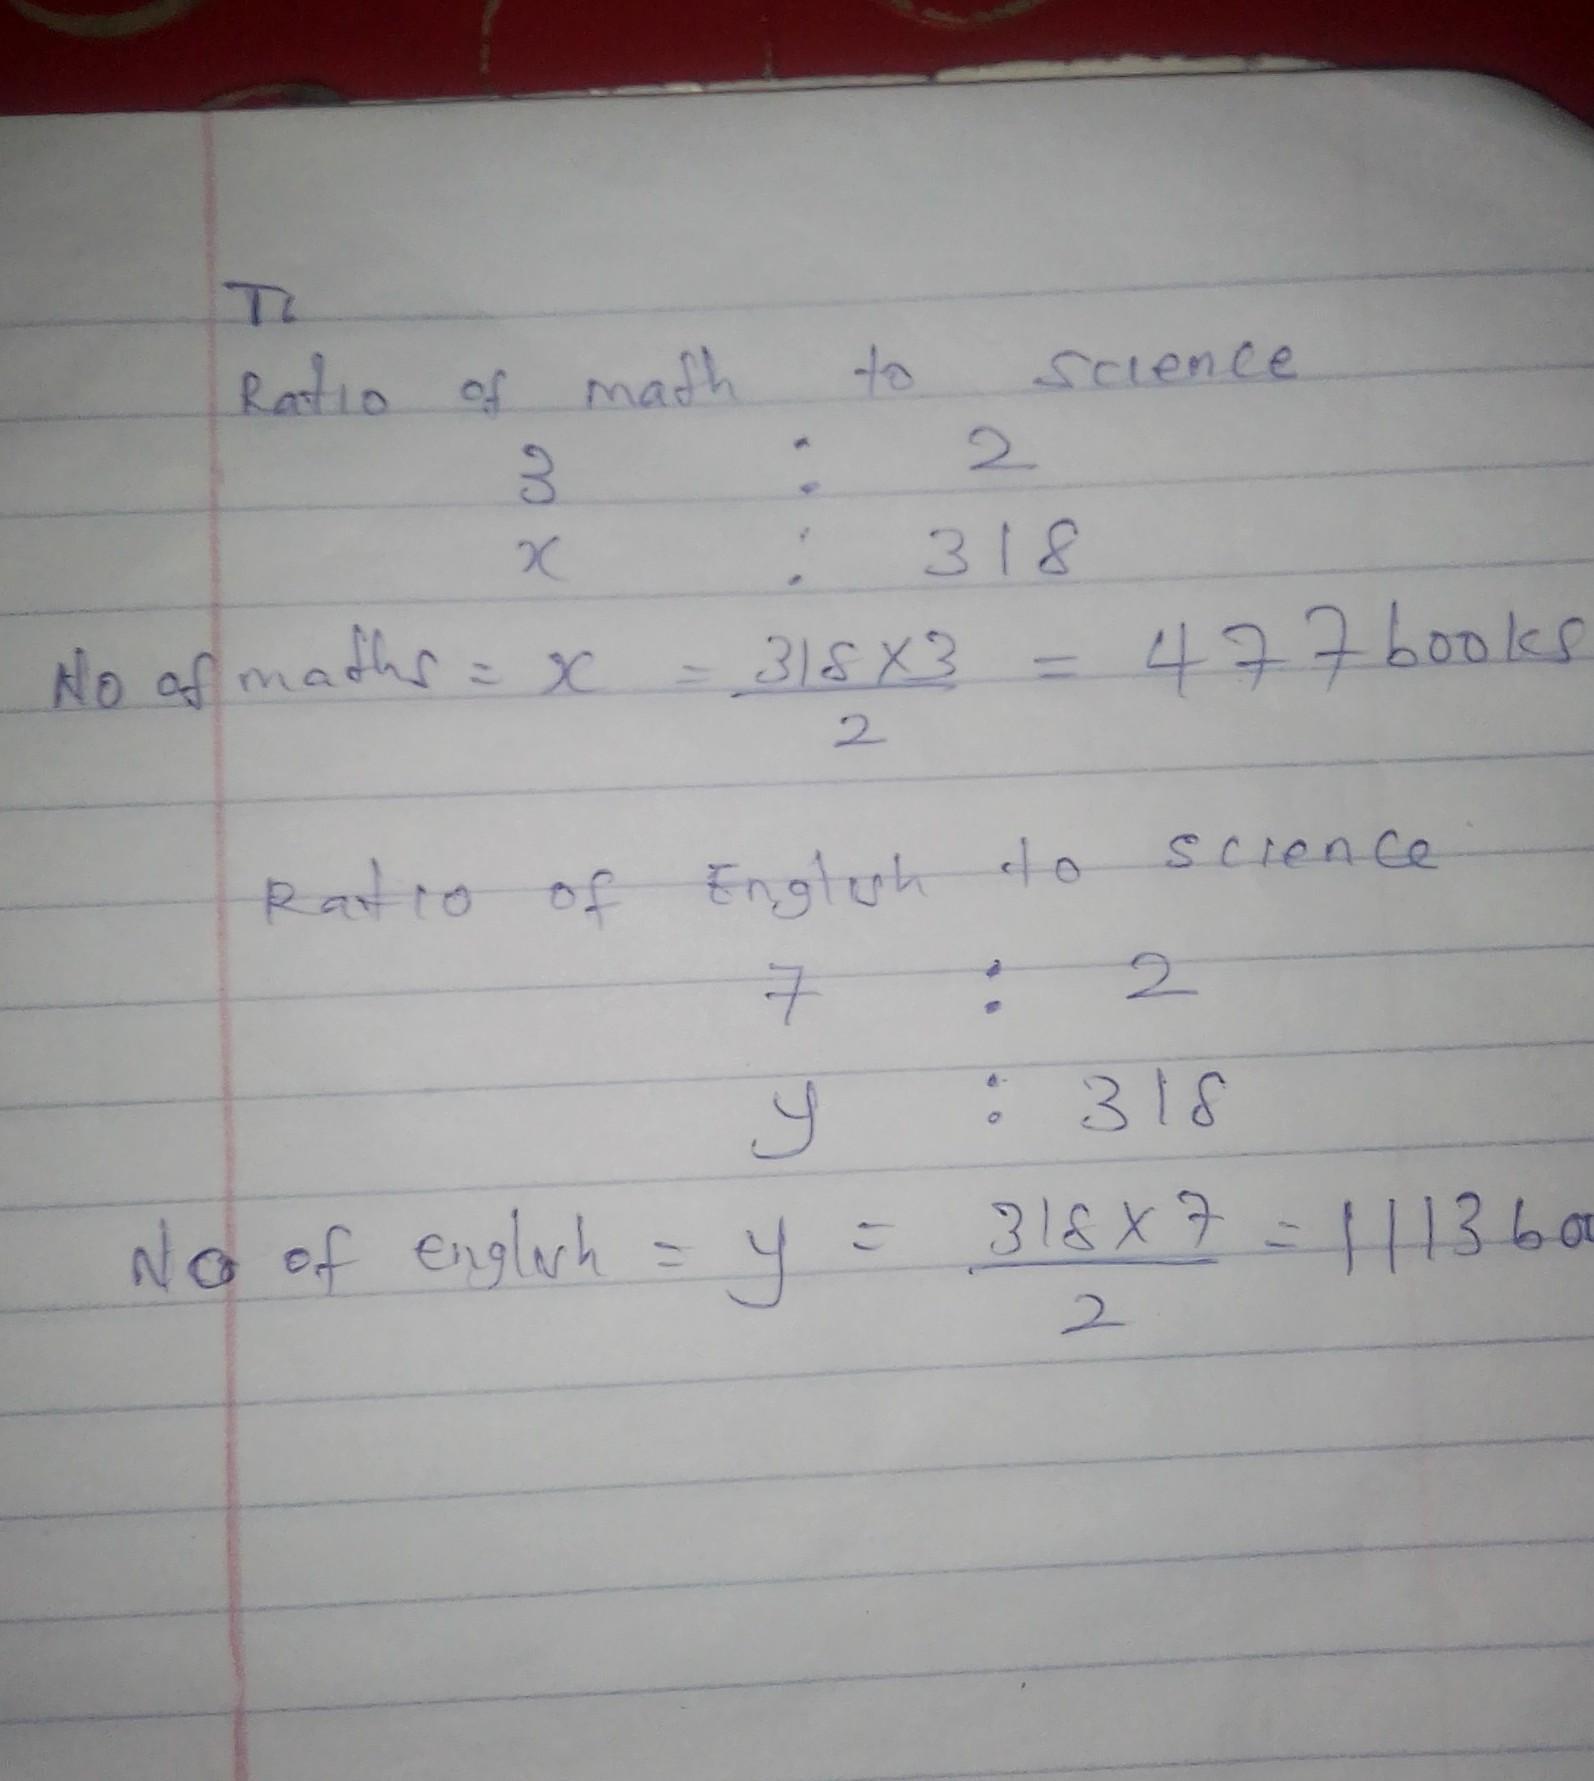 Tl
Ratio of math to science
3 : 2
x : 318
No of maths = x = 318 x 3 = 477 books
2
Ratio of English to science
7 : 2
y : 318
No of english = y = 318 x 7 = 1113 boo
2